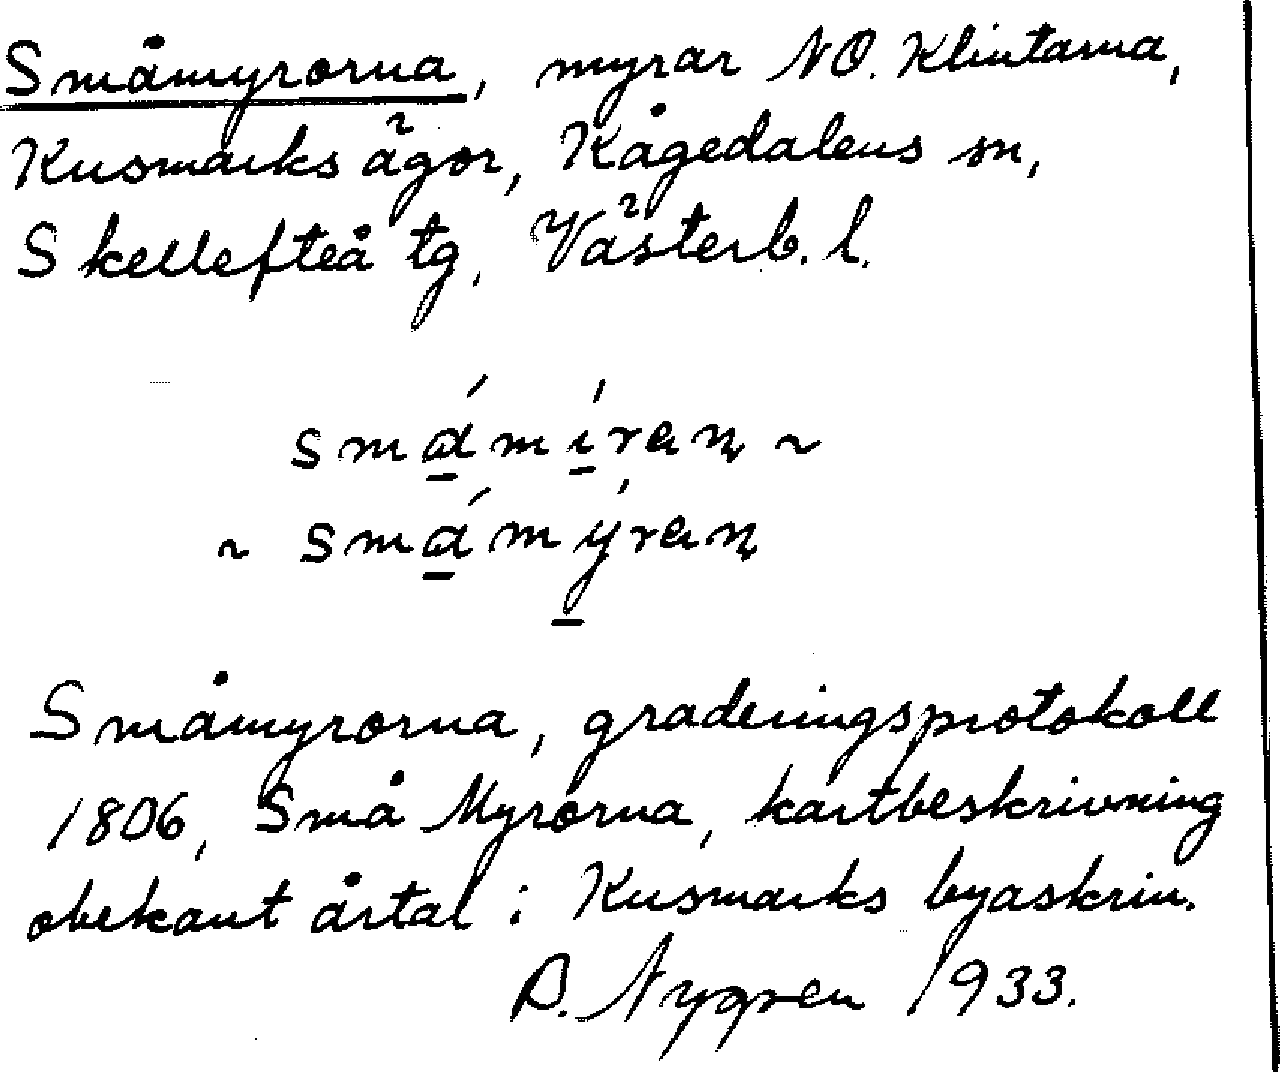 Småmyrorna, myrar NO. Klintarna,
Kusmarks ägor, Kågedalens sn,
Skellefteå tg, Västerb. l.
småmíran ~
~ småmýran
Småmyrorna, graderingsprotokoll
1806, Små Myrorna, kartbeskrivning
obekant årtal i Kusmarks byaskrin.
A. Nygren 1933.